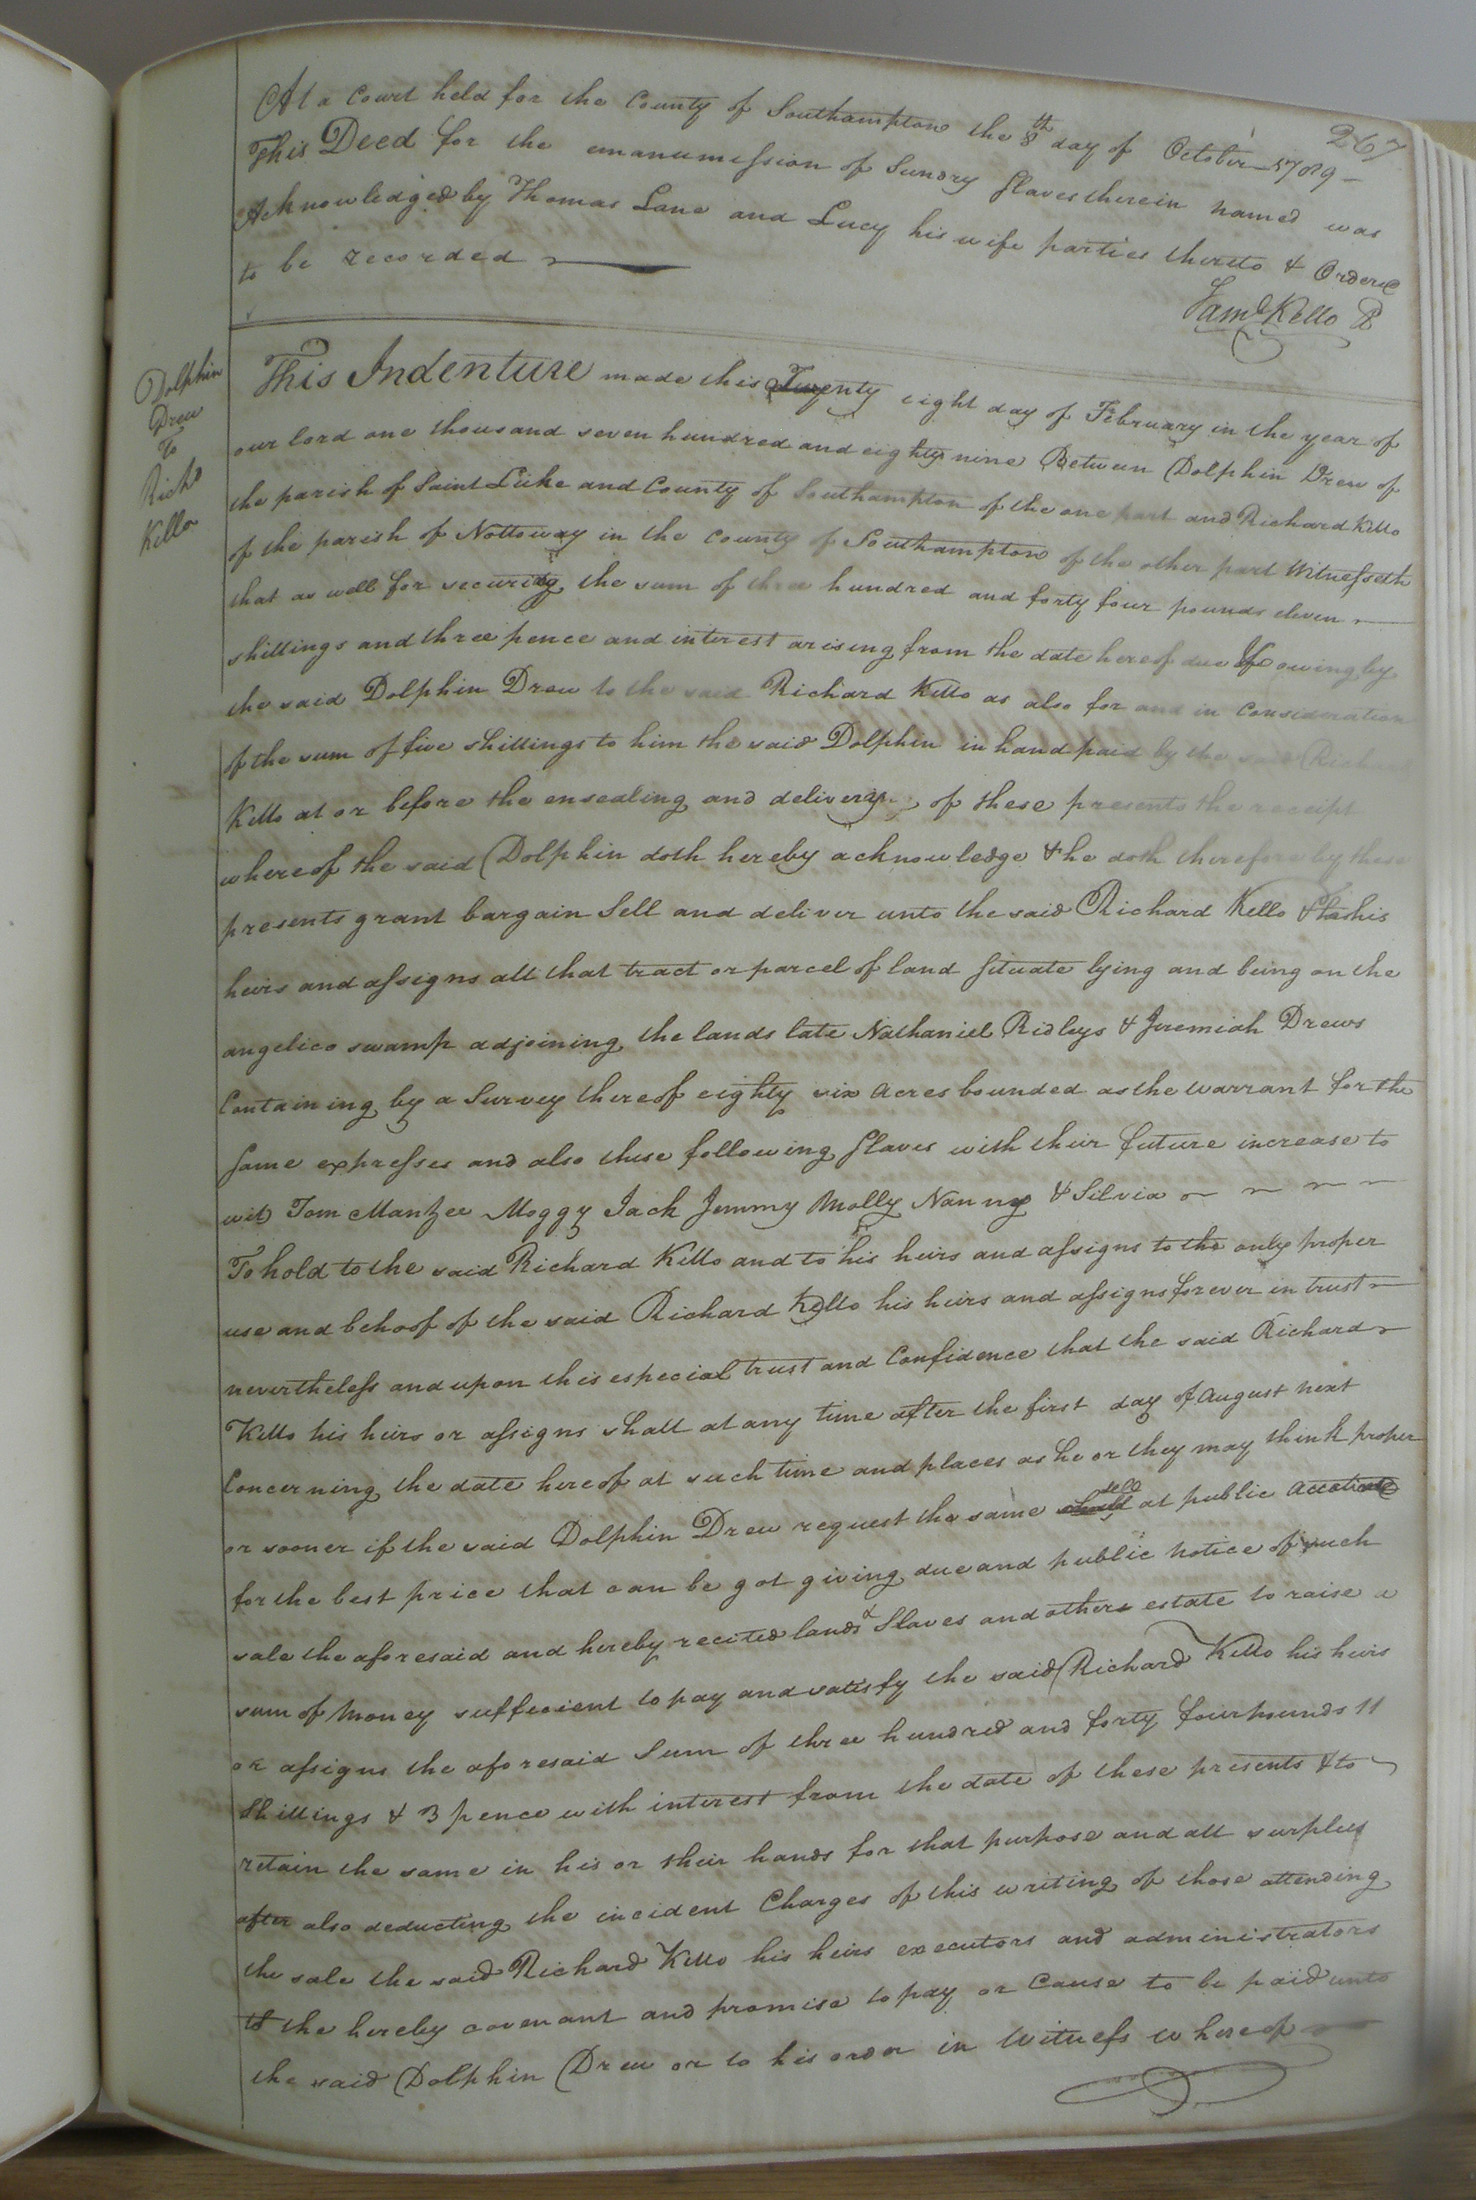 267
At a Court held for the County of Southampton the 8th day of October 1789 —
This Deed for the emanumission of Sundry slaves therein named was
Acknowledged by Thomas Lane and Lucy his wife parties thereto & Ordered
to be recorded
Saml Kello
Dolphin
Drew
To
Richd
Kello
This Indenture made this Twenty eight day of February in the year of
our lord one thousand seven hundred and eighty nine Between Dolphin Drew of
the parish of Saint Luke and County of Southampton of the one part and Richard Kello
of the parish of Nottoway in the County of Southampton of the other part Witnesseth
that as well for securing the sum of three hundred and forty four pounds eleven
shillings and three pence and interest arising from the date hereof due & owing by
the said Dolphin Drew to the said Richard Kello as also for and in Consideration
of the sum of five shillings to him the said Dolphin in hand paid by the said Richard
Kello at or before the ensealing and delivery of these presents the receipt
whereof the said Dolphin doth hereby acknowledge & he doth therefore by these
presents grant bargain Sell and deliver unto the said Richard Kello & his
heirs and assigns all that tract or parcel of land situate lying and being on the
angelico swamp adjoining the lands late Nathaniel Ridleys & Jeremiah Drews
Containing by a Survey thereof eighty six acres bounded as the warrant for the
same expresses and also these following slaves with their future increase to
wit Tom Mantzee Moggy Jack Jemmy Molly Nanny & Silvia
To hold to the said Richard Kello and to his heirs and assigns to the only proper
use and behoof of the said Richard Kello his heirs and assigns forever in trust
nevertheless and upon this especial trust and Confidence that the said Richard
Kello his heirs or assigns shall at any time after the first day of August next
Concerning the date hereof at such time and places as he or they may think proper
or sooner if the said Dolphin Drew request the same sell at public Auction
for the best price that can be got giving due and public notice of such
sale the aforesaid and hereby recited lands & Slaves and others estate to raise a
sum of money sufficient to pay and satisfy the said Richard Kello his heirs
or assigns the aforesaid Sum of three hundred and forty four pounds 11
Shillings & 3 pence with interest from the date of these presents & to
retain the same in his or their hands for that purpose and all surplus
after also deducting the incident Charges of this writing of those attending
the sale the said Richard Kello his heirs executors and administrators
the hereby covenant and promise to pay or Cause to be paid unto
the said Dolphin Drew or to his order in Witness whereof